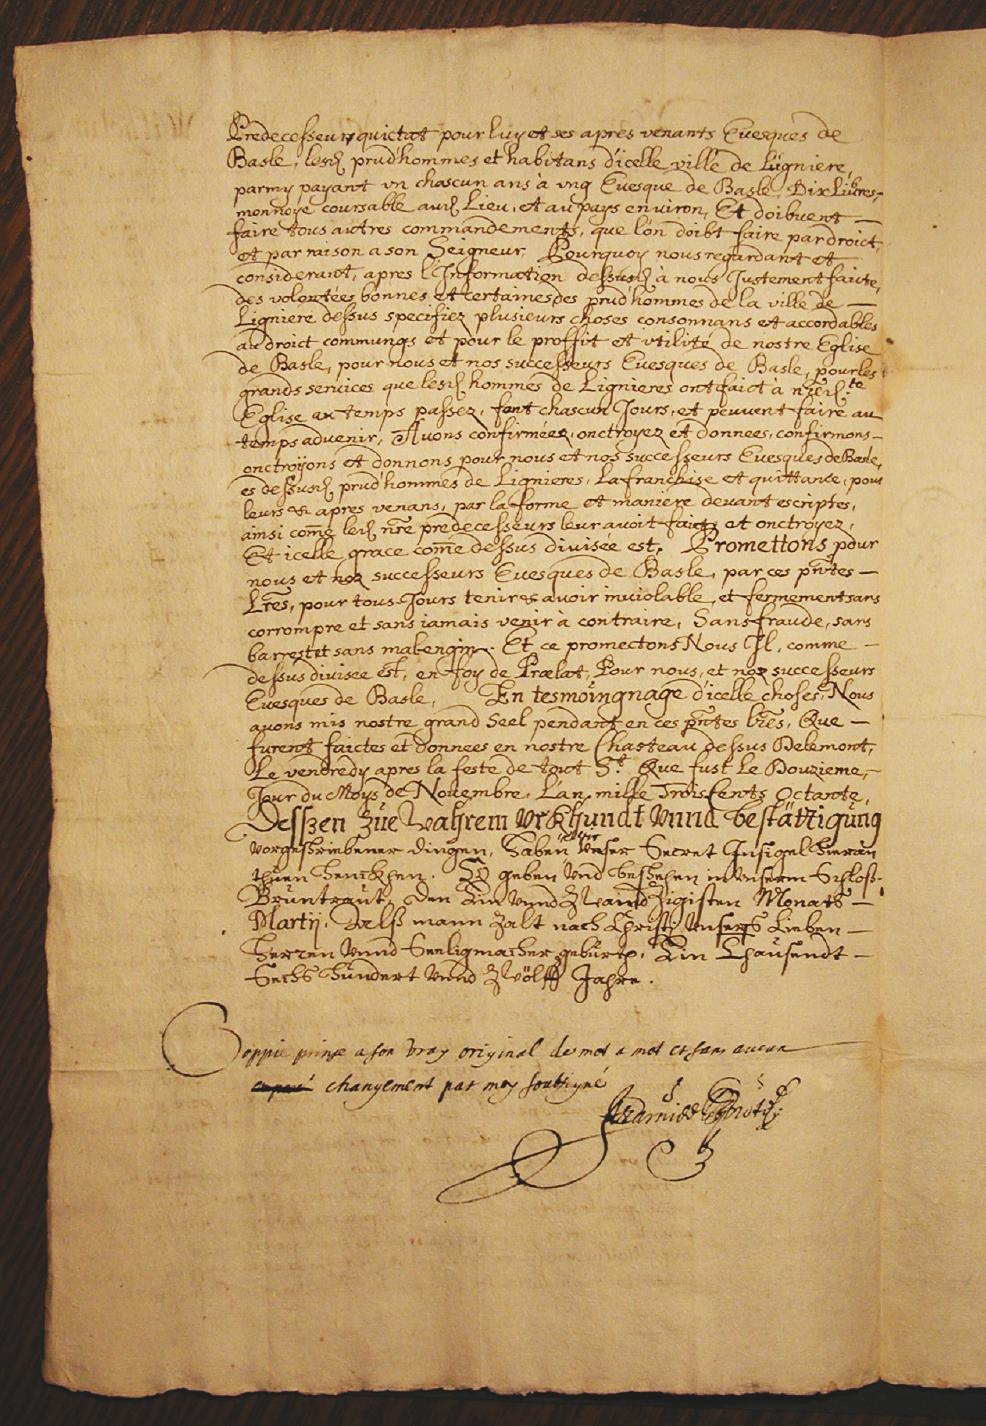 Predecesseurs quictat pour luy et ses apres venants Euesques de
Basle, lesd. prud'hommes et habitans d'icelle ville de Lügniere,
parmy payant vn chascun ans à vng Euesque de Basle, Dix Liures,
monnoye coursable aud. Lieu, et au pays environ, Et doibuent —
faire tous autres commandements, que l'on doibt faire par droict,
et par raison a son Seigneur, Pourquoy nous regardant et
considerant, apres l'Information dessusd. à nous Justement faicte,
des volontées bonnes et certaines des prud'hommes de la ville de —
Ligniere dessus specifiez plusieurs choses consonnans et accordables
au droict communqs et pour le proffit et vtilité de nostre Eglise
de Basle, pour nous et nos successeurs Euesques de Basle, pour les
grands services que lesd. hommes de Lignieres ont faict à nred. te
Eglise au temps passez, font chascun Jours, et peuvent faire au
temps advenir, Auons confirmées, onctroyez et donnees, confirmons —
onctroÿons et donnons pour nous et nos successeurs Euesques de Basle,
es dessusd. prud'hommes de Lignieres, La franchise et quittance, pour
leurs & apres venans, par la forme et maniere devant escriptes,
ainsi come led. nre predecesseurs leur avoit faictz et onctroyez,
Et icelle grace come dessus divisée est, Promettons pour
nous et noz successeurs Euesques de Basle, par ces pntes —
Lres, pour tous Jours tenir & avoir inuiolable et fermement sans
corrompre et sans iamais venir à contraire, Sans fraude, sans
barrestet sans malengin. Et ce promectons Nous Jl, comme —
dessus divisee est, en foy de Prælat, Pour nous, et noz successeurs
Euesques de Basle, En tesmoingnage d'icelle choses, Nous
auons mis nostre grand Seel pendant en ces pntes lres, Que —
furent faictes et donnees en nostre Chasteau dessus Delemont,
Le vendredy apres la feste de tout St. Que fust Le Douzieme,
Jour du Moys de Nouembre, L'an mille Trois Cents Octante,
Desszen züe wahrem Vrkhundt Vnnd bestättigüng
vorgeschriebener dingen, haben Vnser Secret Insigel hieran
thuen henckhen. So geben Vnd beschehen in Vnserm Schloß
Brüntraüt, Den Ein Vnnd Zwaintzigisten Monats —
Martij, Als mann Zalt nach Christi Vnsers Lieben —
Herren Vnnd Seeligmacher gebürth, Ein Thaüsendt —
Sechs Hündert Vnnd Zwölff Jahre.
Coppie prinse a son vray original de mot a mot et sans aucun
changement par moy soubsigné